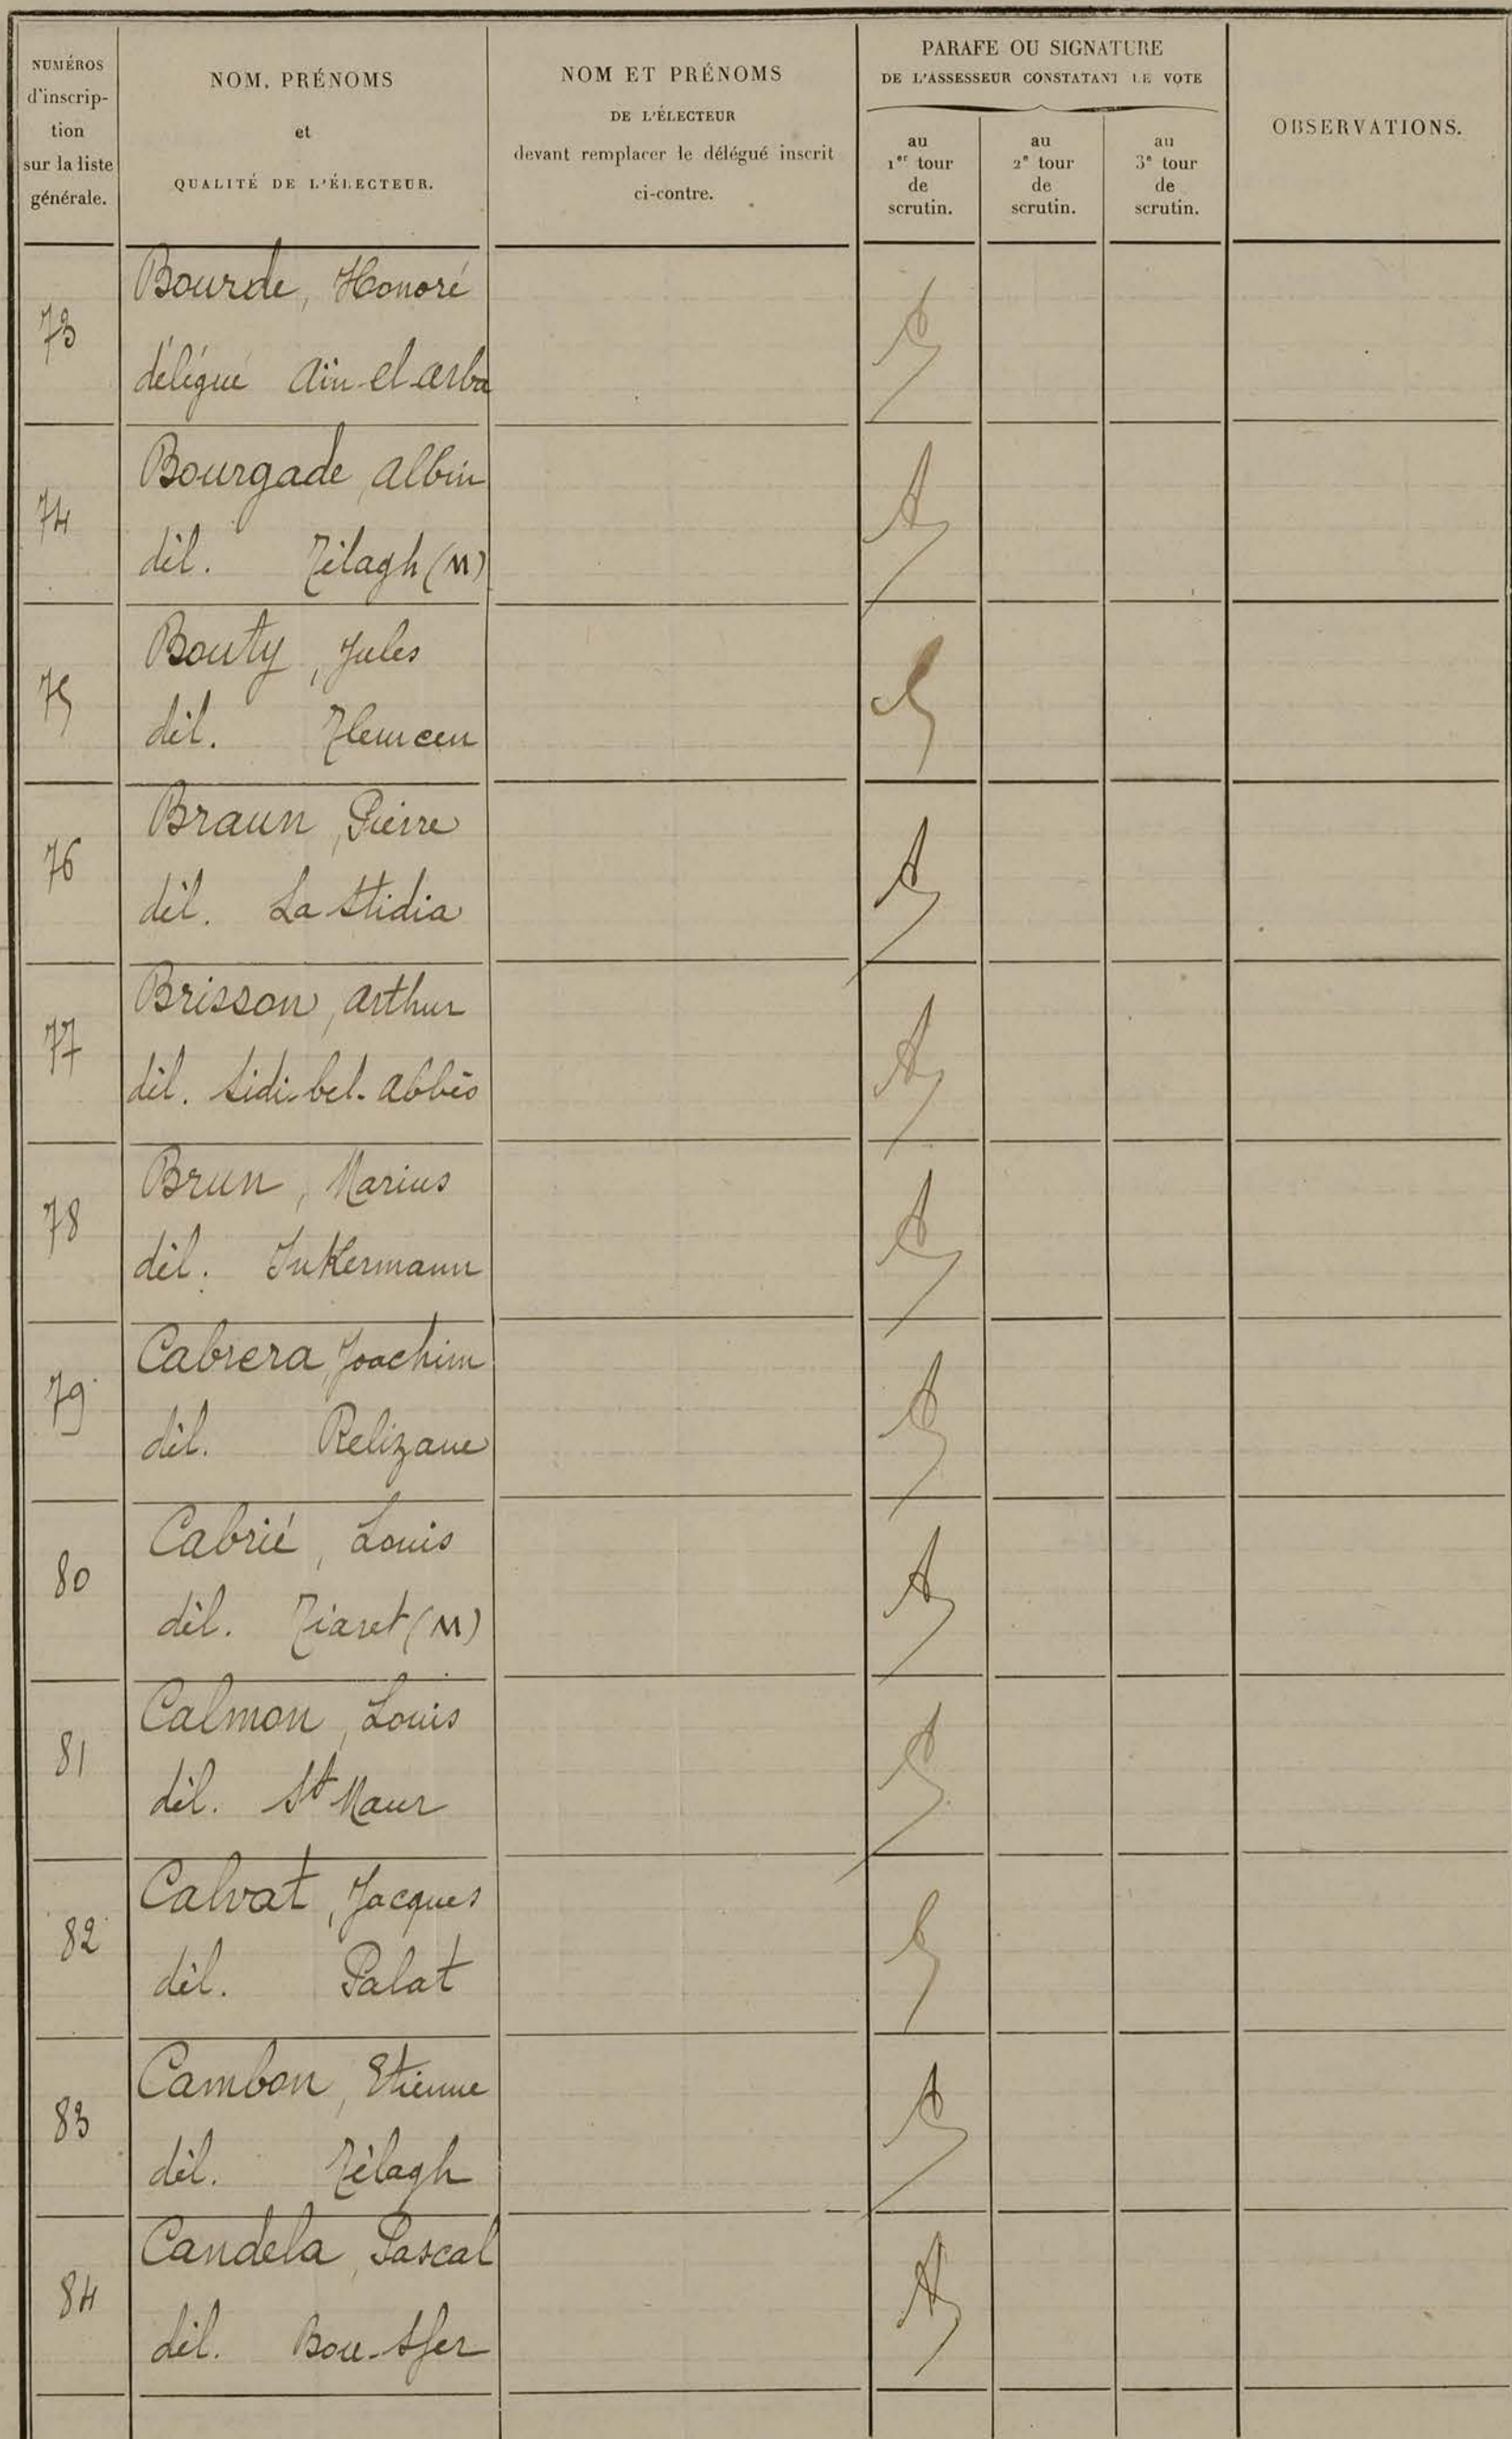 NUMÉROS
d'inscrip-
tion
sur la liste
générale.
NOM, PRÉNOMS
et
QUALITÉ DE L'ÉLECTEUR.
NOM ET PRÉNOMS
DE L'ÉLECTEUR
devant remplacer le délégué inscrit
ci-contre.
PARAFE OU SIGNATURE
DE L'ASSESSEUR CONSTATANT LE VOTE
au
1er tour
de
scrutin.
au
2e tour
de
scrutin.
au
3e tour
de
scrutin.
OBSERVATIONS.
73
Bourde, Honoré
délégué Aïn-el-arba
74
Bourgade, Albin
dél. Télagh (M)
75
Bouty, Jules
dél. Tlemcen
76
Braun, Pierre
dél. La Stidia
77
Brisson, Arthur
dél. Sidi-bel-Abbès
78
Brun, Marius
dél. Inkermann
79
Cabrera, Joachim
dél. Relizane
80
Cabrié, Louis
dél. Tiaret (M)
81
Calmon, Louis
dél. St Maur
82
Calvat, Jacques
dél. Palat
83
Cambon, Etienne
dél. Télagh
84
Candela, Pascal
dél. Bou-Sfer